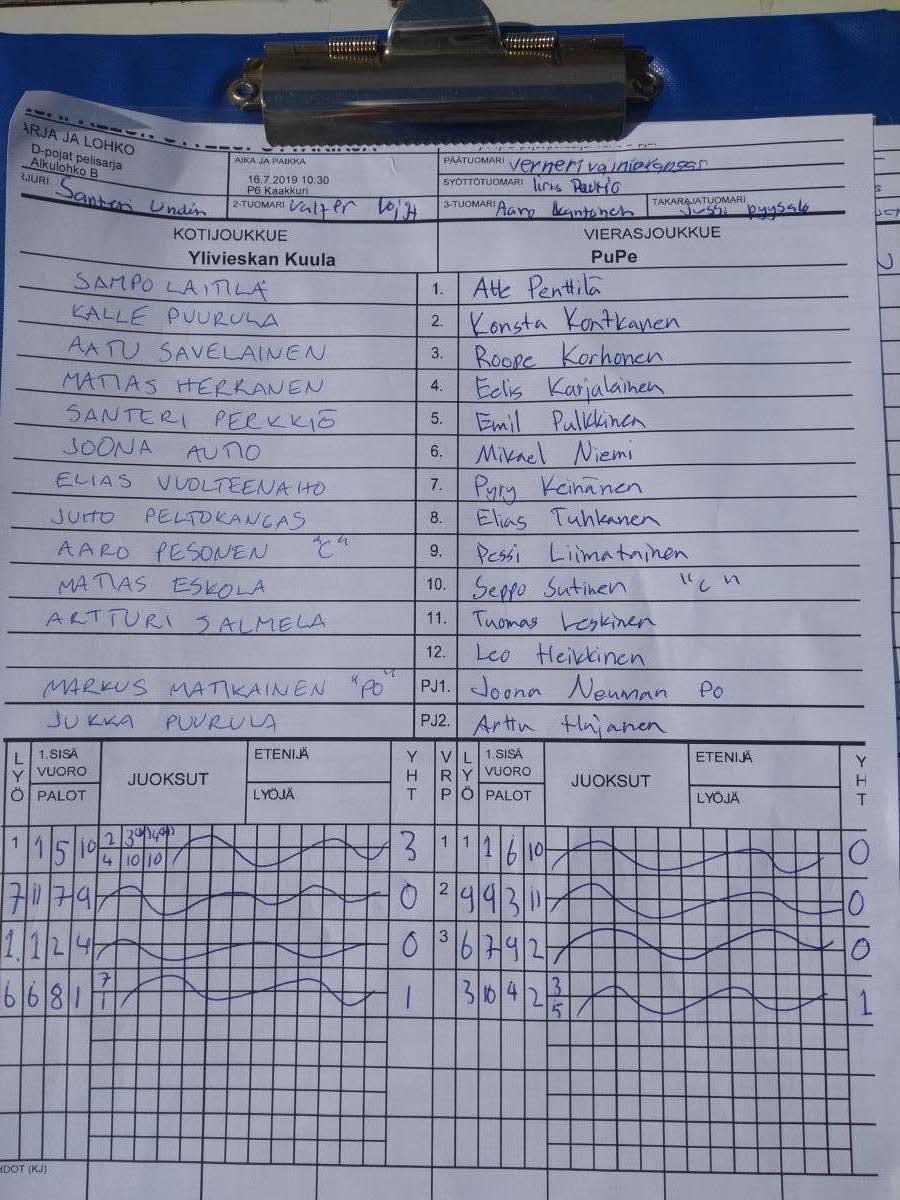 ARJA JA LOHKO
D-pojat pelisarja
Alkulohko B
AIKA JA PAIKKA
16.7.2019 10:30
P6 Kaakkuri
PÄÄTUOMARI
SYÖTTÖTUOMARI Iiris
Santeri 2-TUOMARI Valter 3-TUOMARI Aaro TAKARAJATUOMARI Jussi pyysalo
KOTIJOUKKUE VIERASJOUKKUE
Ylivieskan Kuula PuPe
SAMPO LAITILA 1. Atte Penttilä
KALLE PUURULA 2. Konsta Kontkanen
AATU SAVELAINEN 3. Roope Korhonen
MATIAS HERRANEN 4. Eelis Karjalainen
SANTERI PERKKIÖ 5. Emil Pulkkinen
JOONA AUTIO 6. Mikael Niemi
ELIAS VUOLTEENAHO 7. Pyry Keinänen
JUHO PELTOKANGAS 8. Elias Tuhkanen
AARO PESONEN "C" 9. Pessi Liimatainen
MATIAS ESKOLA 10. Seppo Sutinen "C"
ARTTURI SALMELA 11. Tuomas Leskinen
12. Leo Heikkinen
MARKUS MATIKAINEN "PO" PJ1. Joona Neuman PO
JUKKA PUURULA PJ2. Arttu
LYÖ 1.SISÄ VUORO PALOT JUOKSUT ETENIJÄ LYÖJÄ YHT VRP LYÖ 1.SISÄ VUORO PALOT JUOKSUT ETENIJÄ LYÖJÄ YHT
1 1 5 10 2 3 4 3 1 1 1 6 10 0
4 10 10
7 11 7 9 0 2 9 9 3 11 0
1. 1 2 4 0 3 6 7 9 2 0
6 6 8 1 7 1 3 10 4 2 3 1
1 5
HDOT (KJ)